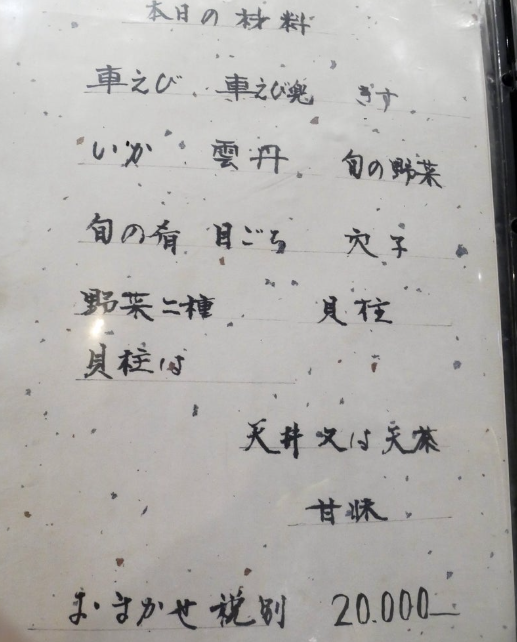 本日の材料
車えび 車えび兜 きす
いか 雲丹 旬の野菜
旬の肴 目ごち 穴子
野菜二種 貝柱
貝柱は
天丼又は天茶
甘味
おまかせ 税別 20.000—